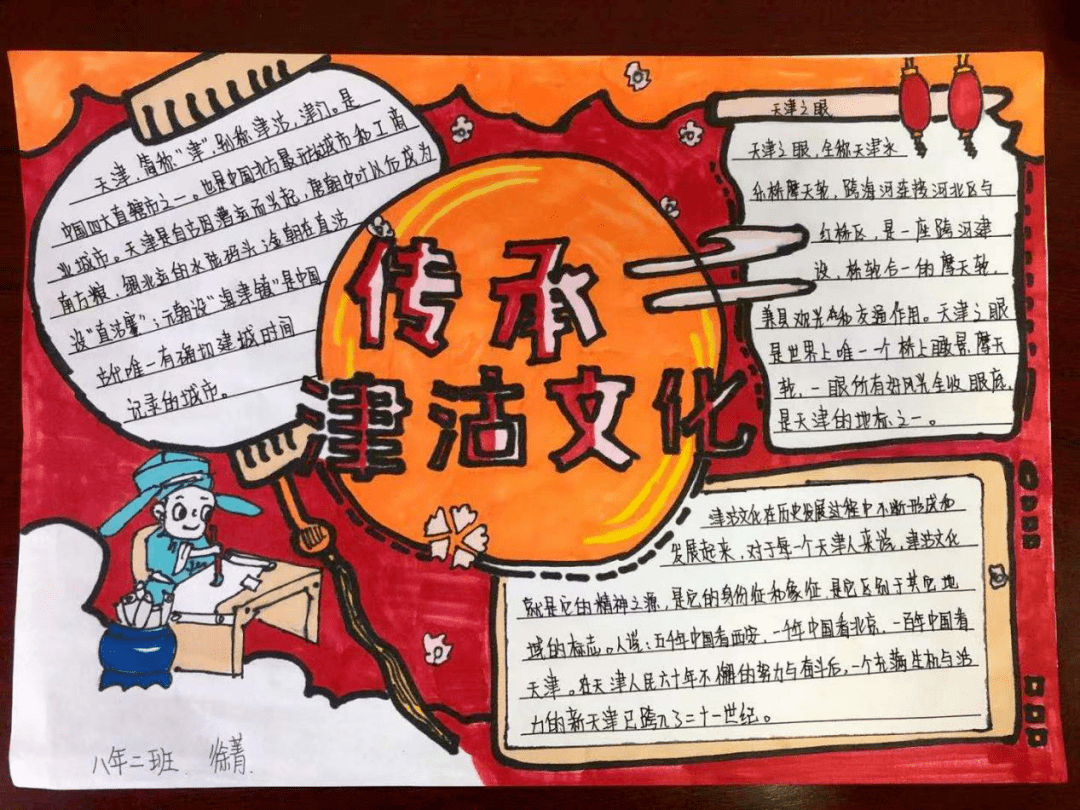 传承
津沽文化
天津，简称“津”，别称津沽，津门。是
中国四大直辖市之一。也是中国北方最开放城市和工商
业城市。天津是自古因漕运而兴起，唐朝中叶以后成为
南方粮、绸北运的水陆码头；金朝在直沽
设“直沽寨”；元朝设“海津镇”是中国
古代唯一有确切建城时间
记录的城市。
天津之眼
天津之眼，全称天津永
乐桥摩天轮，跨海河连接河北区与
红桥区，是一座跨河建
设，桥轮合一的摩天轮，
兼具观光和交通作用。天津之眼
是世界上唯一一个桥上瞰景摩天
轮，一眼所有好风光全收眼底，
是天津的地标之一。
津沽文化在历史发展过程中不断形成和
发展起来，对于每一个天津人来说，津沽文化
就是它的精神之源，是它的身份证和象征，是它区别于其它地
域的标志。人说：五千年中国看西安，一千年中国看北京，一百年中国看
天津。在天津人民六十年不懈的努力与奋斗后，一个充满生机与活
力的新天津已跨入了二十一世纪。
八年二班 徐菁